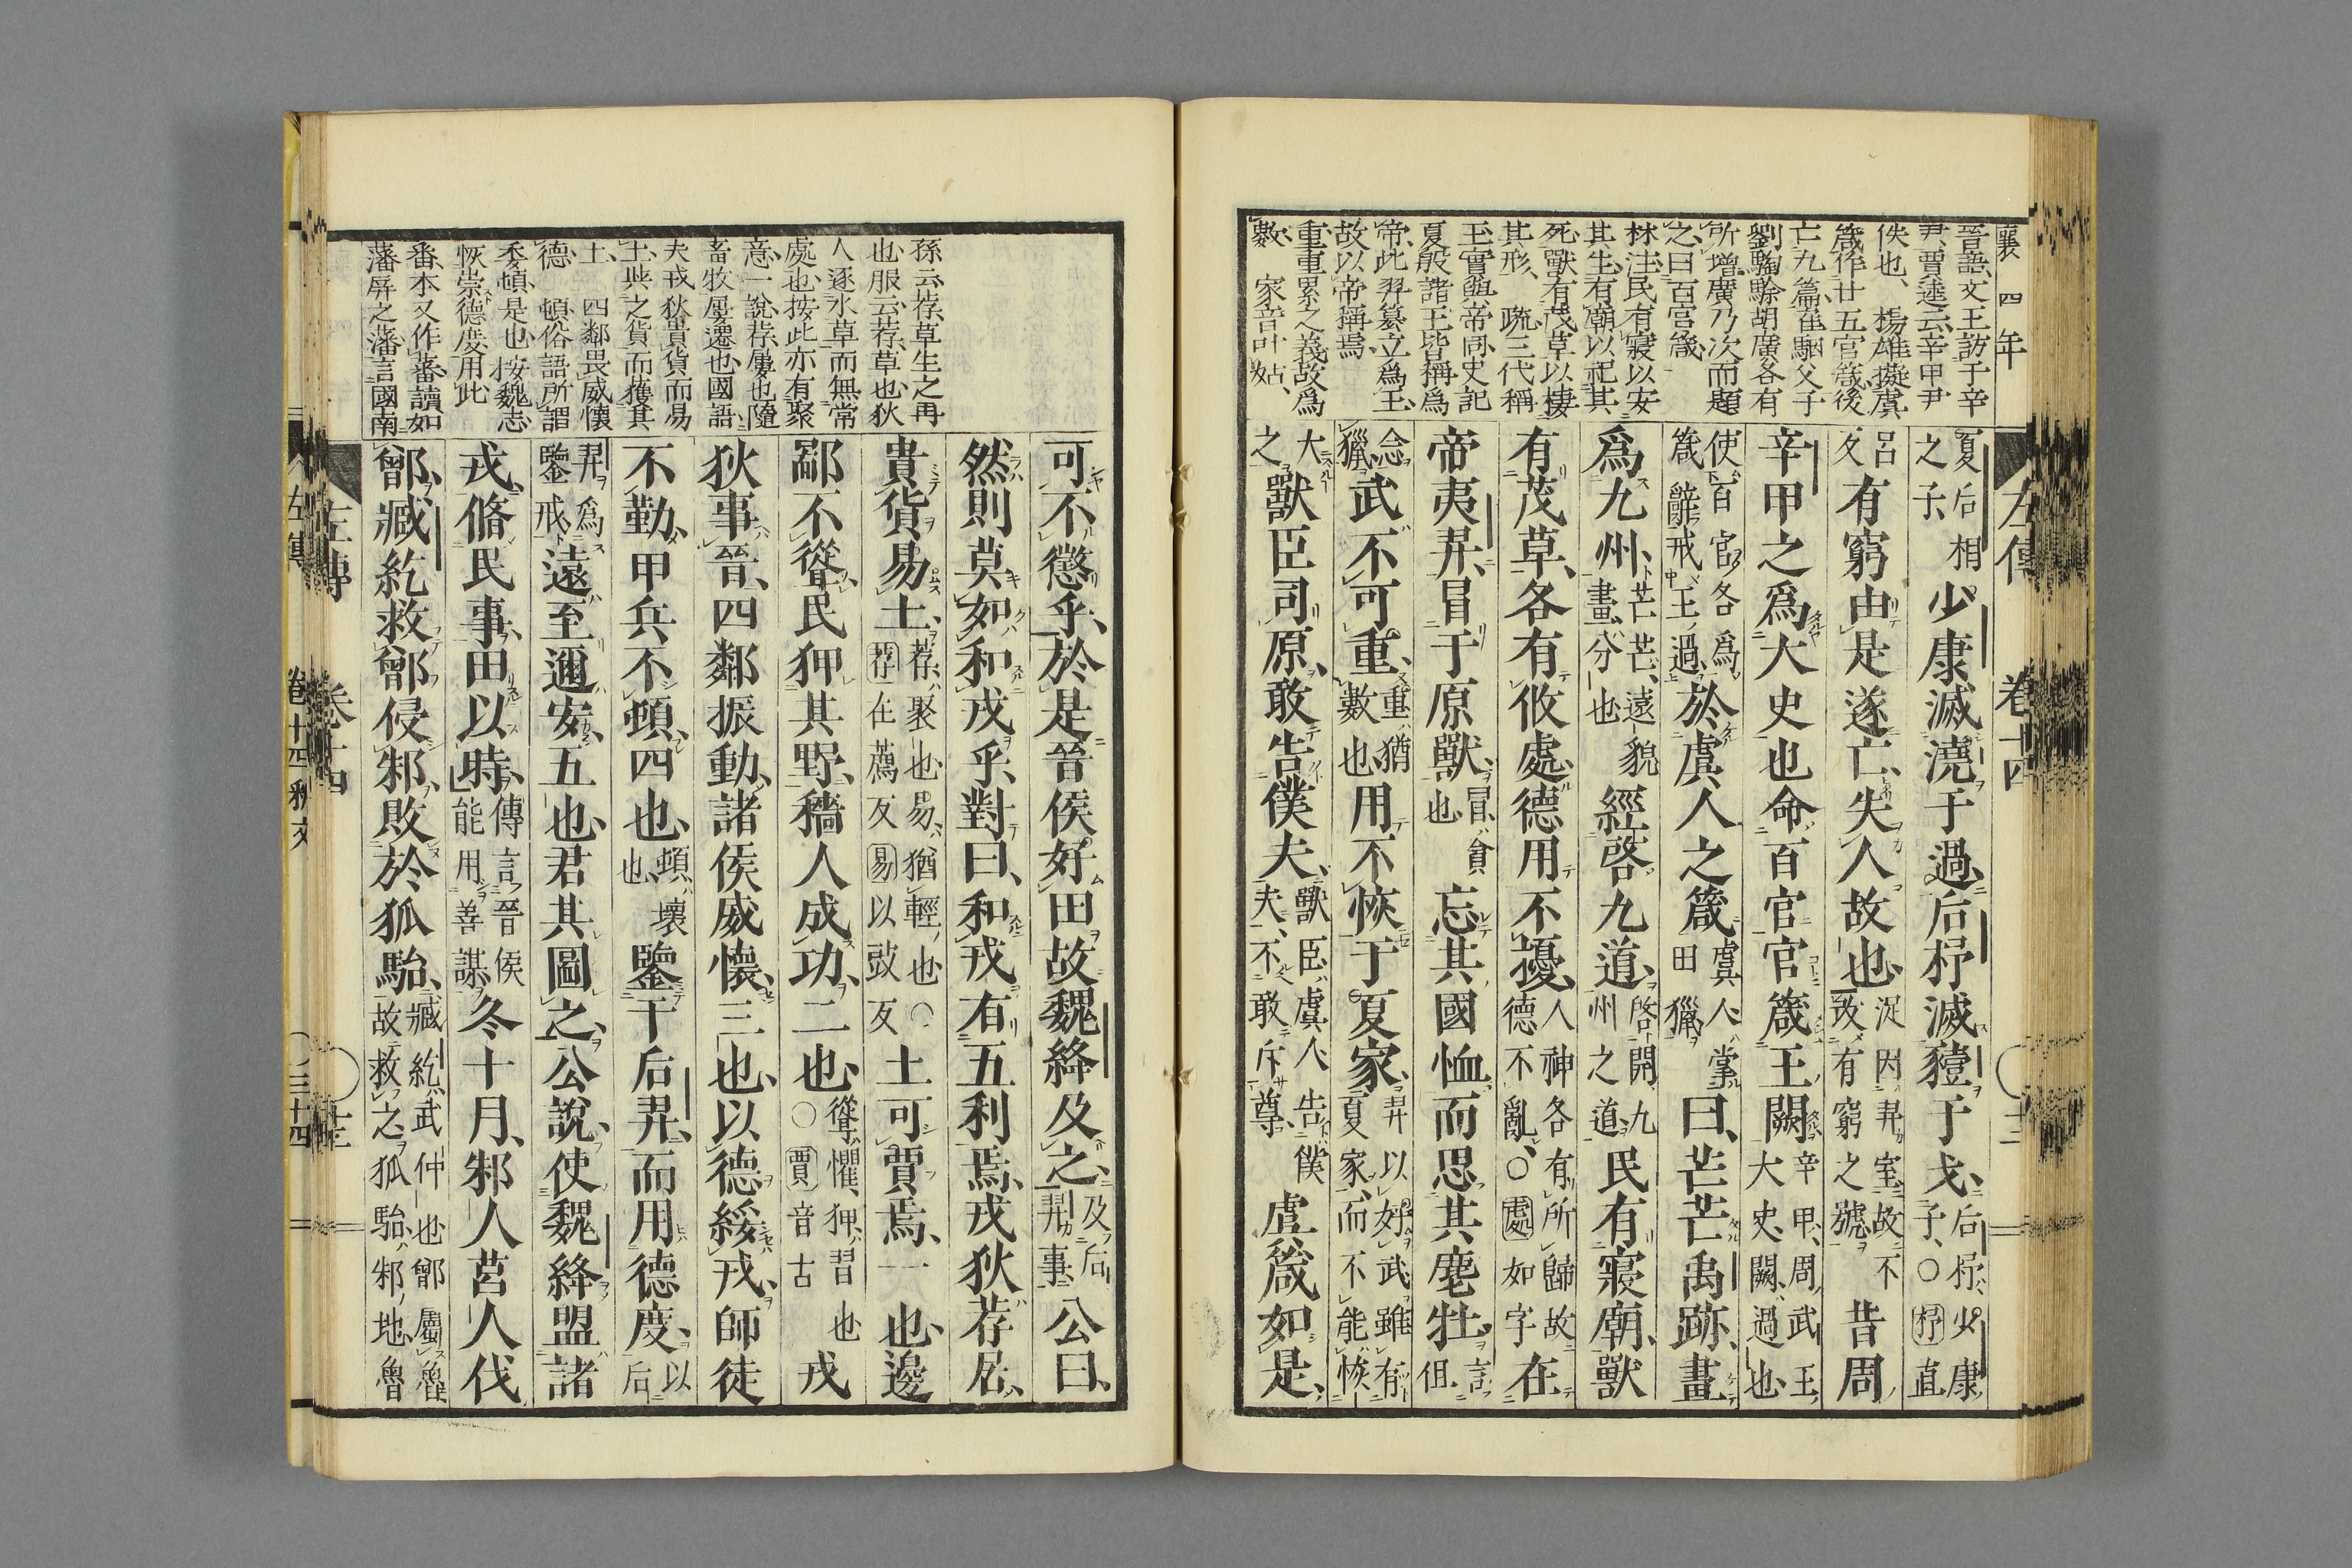 襄四年
晉語、文王訪于辛
尹、賈逵云、辛甲尹
佚也、楊雄擬虞
箴作廿五官箴、後
亡九篇、崔駰父子
劉騊駼胡廣各有
所增廣、乃次而題
之、曰百官箴、
林注、民有寢以安
其生、有廟以祀其
死、獸有茂草以棲
其形、疏、三代稱
王、實與帝同、史記
夏殷諸王皆稱爲
帝、此羿篡立爲王、
故以帝稱焉、
重重累之義、故爲
數、家音叶姑、
左傳 卷十四
夏后相
之子、
少康滅澆于過、后杼滅豷于戈、
后杼、少康
子、○杼直
呂
反
有窮由是遂亡、失人故也、
浞因羿室、故不
改有窮之號
昔周
辛甲之爲大史也、命百官、官箴王闕、
辛甲、周武王
大史、闕、過也
使百官各爲
箴辭戒王過
於虞人之箴
虞人、掌
田獵
曰、芒芒禹跡、畫
爲九州、
芒芒、遠貌
畫、分也
經啓九道、
啓開九
州之道
民有寢廟、獸
有茂草、各有攸處、德用不擾、
人神各有所歸、故
德不亂、○處如字
在
帝夷羿、冒于原獸、
冒、貪
也
忘其國恤、而思其麀牡、
言
但
念
獵
武不可重、
重猶
數也
用不恢于夏家、
羿以好武、雖有
夏家、而不能恢
大
之
獸臣司原、敢告僕夫、
獸臣、虞人、告僕
夫、不敢斥尊
虞箴如是、
孫云、荐、草生之再
也、服云、荐、草也、狄
人逐水草而無常
處也、按此亦有聚
意、一說、荐、屢也、隨
畜牧屢遷也、國語
夫戎狄貴貨而易
土、與之貨而獲其
土、四鄰畏威懷
德、頓、俗語所謂
委頓是也、按魏志
恢崇德度、用此
番、本又作蕃、讀如
藩屏之藩、言國南
可不懲乎、於是晉侯好田、故魏絳及之、
及后
羿事
公曰、
然則莫如和戎乎、對曰、和戎有五利焉、戎狄荐居、
貴貨易土、
荐、聚也、易、猶輕也、○
荐在薦反易以豉反
土可賈焉、一也、邊
鄙不聳、民狎其野、穡人成功、二也、
聳、懼、狎、習也
○賈音古
戎
狄事晉、四鄰振動、諸侯威懷、三也、以德綏戎、師徒
不勤、甲兵不頓、四也、
頓、壞
也
鑒于后羿、而用德度、
以
后
羿爲
鑒戒
遠至邇安、五也、君其圖之、公說、使魏絳盟諸
戎、脩民事、田以時、
傳言晉侯
能用善謀
冬十月、邾人莒人伐
鄫、臧紇救鄫、侵邾、敗於狐駘、
臧紇、武仲也、鄫屬魯
故救之、狐駘、邾地、魯
左傳 卷十四 〇 十三